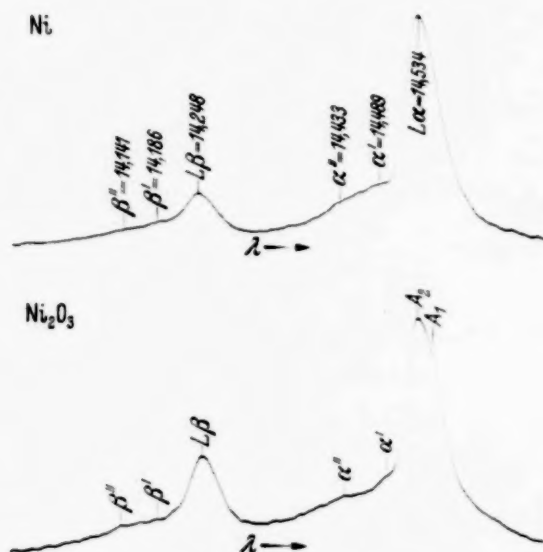 Ni
β"=14,141
β'=14,186
Lβ=14,248
α"=14,433
α'=14,489
Lα=14,534
λ
Ni₂O₃
β"
β'
Lβ
α"
α'
A₂
A₁
λ